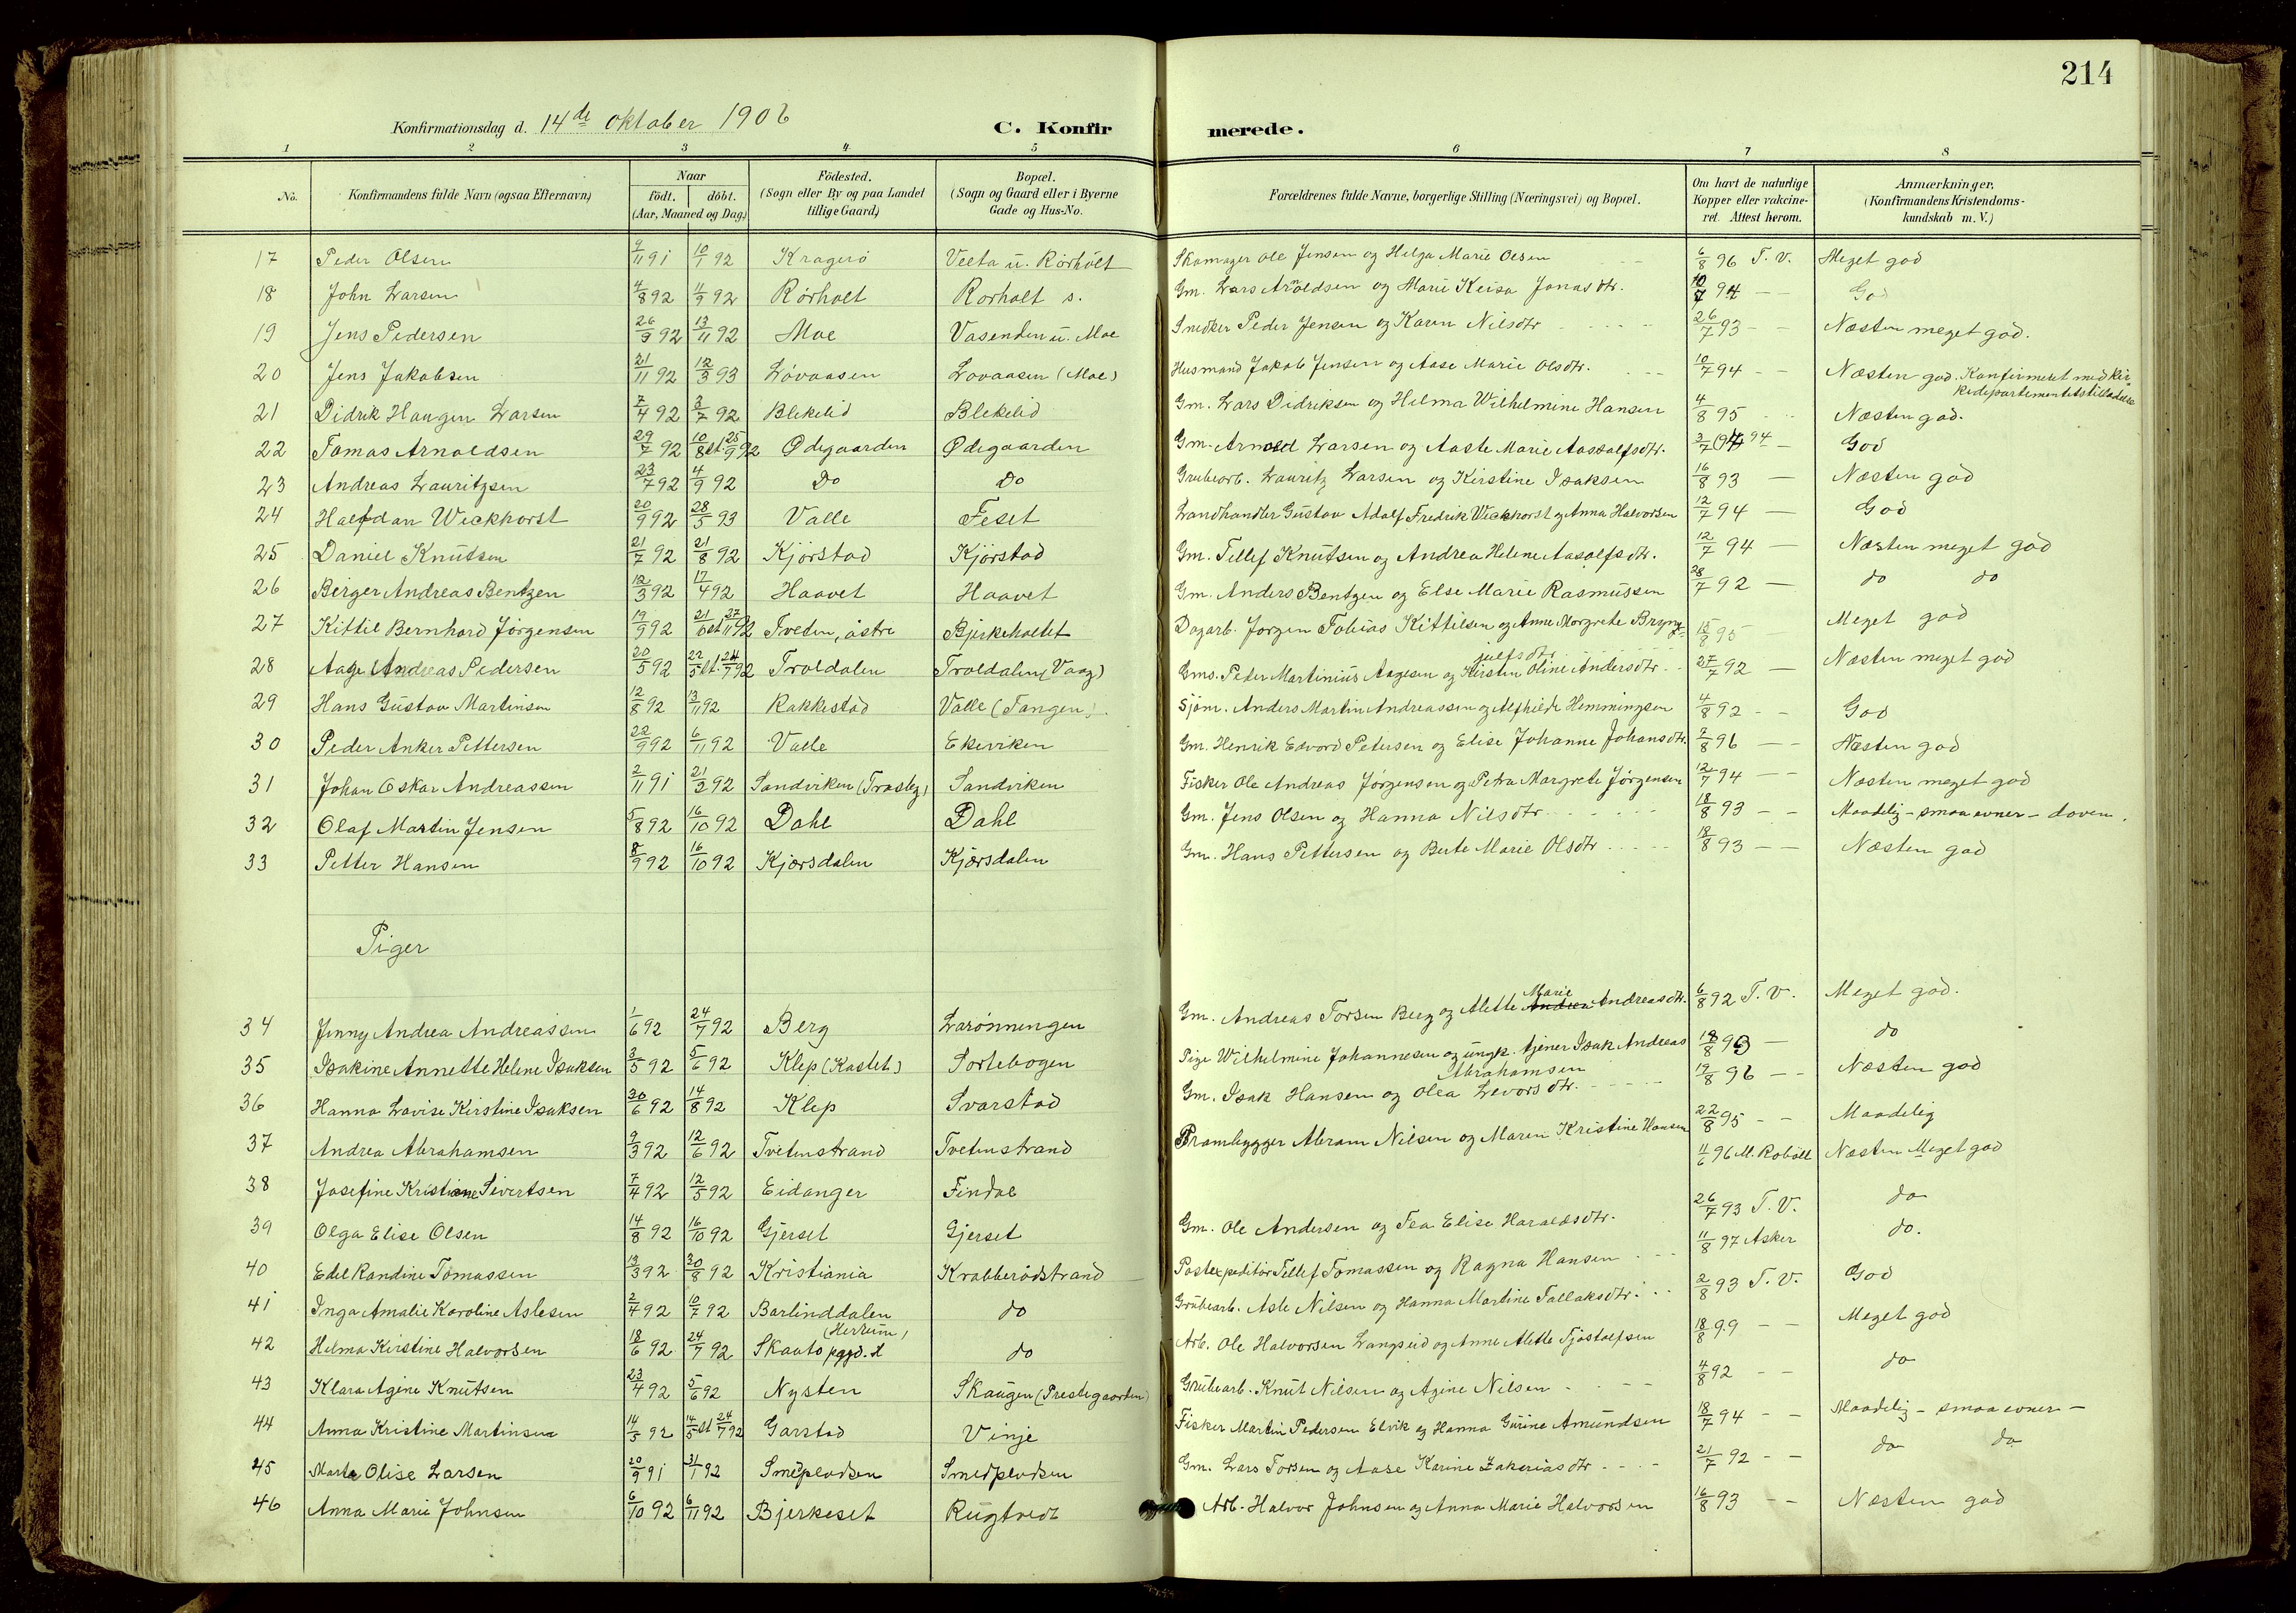 214
Konfirmationsdag d. 14de oktober 1906 C. Konfirmerede.
1 2 3 4 5 6 7 8
No. Konfirmandens fulde Navn (ogsaa Efternavn) Naar födt. döbt. (Aar, Maaned og Dag.) Födested. (Sogn eller By og paa Landet tillige Gaard) Bopæl. (Sogn og Gaard eller i Byerne Gade og Hus-No. Forældrenes fulde Navne, borgerlige Stilling (Næringsvei) og Bopæl. Om havt de naturlige Kopper eller vakcineret. Attest herom. Anmærkninger, (Konfirmandens Kristendomskundskab m. V.)
17 Peder Olsen 9/11 91 10/1 92 Kragerö Veeta u. Rörholt Skomager Ole Jensen og Helga Marie Olsen 6/8 96 T. V. Meget god
18 John Larsen 4/8 92 11/9 92 Rörholt Rorholt s. Gm. Lars Arnoldsen og Marie Keisa Jonasdtr. 10/7 94 — God
19 Jens Pedersen 26/9 92 13/11 92 Moe Vasenden u. Moe Snedker Peder Jensen og Karen Nilsdtr 26/7 93 - - Næsten meget god.
20 Jens Jakobsen 21/11 92 12/3 93 Lövaasen Lovaasen (Moe) Husmand Jakob Jensen og Aase Marie Olsdtr. 10/7 94 - - Næsten god. Konfirmeret med Kirkedepartementetstilladelse
21 Didrik Haugen Larsen 7/4 92 3/7 92 Blekelid Blekelid Gm. Lars Didriksen og Helma Wilhelmine Hansen 4/8 95 Næsten god.
22 Tomas Arnoldsen 29/7 92 10/8 st. 25/9 92 Ødegaarden Ødegaarden Gm. Arnold Larsen og Aaste Marie Aasolfsdtr. 3/7 94 — God
23 Andreas Lauritzsen 23/7 92 4/9 92 Do Do Grubearb. Lauritz Larsen og Kirstine Isaksen 16/8 93 — Næsten god
24 Halfdan Wickhorst 20/9 92 28/5 93 Valle Feset Landhandler Gustav Adolf Fredrik Wickhorst og Anna Halvorsen 12/7 94 — God
25 Daniel Knutsen 21/7 92 21/8 92 Kjörstad Kjörstad Gm. Tellef Knutsen og Andrea Helene Aasolfsdtr. 12/7 94 — Næsten meget god
26 Berger Andreas Bentzen 12/3 92 17/4 92 Haavet Haavet Gm. Anders Bentzen og Else Marie Rasmussen 28/7 92 — do do
27 Kittil Bernhard Jörgensen 19/9 92 21/6 st 27/11 92 Tveten, östre Bjerkeholtet Dagarb. Jorgen Tobias Kittilsen og Anne Margrete Brynjulfsdtr 15/8 95 — Meget god
28 Aage Andreas Pedersen 20/5 92 22/5 st. 24/7 92 Troldalen Troldalen (Vaag) Gms. Peder Martinius Aagesen og Kirsten Oline Andersdtr. 27/7 92 — Næsten meget god
29 Hans Gustav Martinsen 12/8 92 13/11 92 Rakkestad Valle (Tangen). Sjöm. Anders Martin Andreassen og Alfhilde Hemmingsen 4/8 92 - - God
30 Peder Anker Pettersen 22/9 92 6/11 92 Valle Ekeviken Gm. Henrik Edvard Petersen og Elise Johanne Johansdtr. 7/8 96 — Næsten god
31 Johan Oskar Andreassen 2/11 91 21/2 92 Sandviken (Trosby) Sandviken Fisker Ole Andreas Jörgensen og Petra Margrete Jörgensen 12/7 94 — Næsten meget god
32 Olaf Martin Jensen 5/8 92 16/10 92 Dahl Dahl Gm. Jens Olsen og Hanna Nilsdtr 18/8 93 — Maadelig - smaa evner - doven.
33 Petter Hansen 8/9 92 16/10 92 Kjørsdalen Kjørsdalen Gm. Hans Pettersen og Berte Marie Olsdtr 18/8 93 — Næsten god
Piger
34 Jenny Andrea Andreassen 1/6 92 24/7 92 Berg Larönningen Gm. Andreas Torsen Berg og Alette Marie Andreasdtr. 6/8 92 T. V. Meget god.
35 Isakine Annette Helene Isaksen 3/5 92 5/6 92 Klep (Kastet.) Sortebogen Pige Wilhelmine Johannesen og ungk. tjener Isak Andreas Abrahamsen 18/8 93 — do
36 Hanna Lovise Kirstine Isaksen 30/6 92 14/8 92 Klep Svarstad Gm. Isak Hansen og Olea Levorsdtr. 19/8 96 - - Næsten god
37 Andrea Abrahamsen 9/3 92 12/6 92 Tvetenstrand Tvetenstrand Prambygger Abram Nilsen og Maren Kristine Hansen 22/8 95 - - Maadelig
38 Josefine Kristiane Sivertsen 7/4 92 12/5 92 Eidanger Findal 11/6 96 Næsten Meget god
39 Olga Elise Olsen 14/8 92 16/10 92 Gjerset Gjerset Gm. Ole Andersen og Tea Elise Haraldsdtr. 26/7 93 T. V. do
40 Edel Randine Tomassen 13/3 92 30/8 92 Kristiania Krabberödstrand Postexpeditör Tellef Tomassen og Ragna Hansen 11/8 97 Asker do.
41 Inga Amalie Karoline Aslesen 2/4 92 10/7 92 Barlinddalen do Grubearb. Asle Nilsen og Hanna Martine Tallaksdtr. 2/8 93 T. V. God
42 Helma Kirstine Halvorsen 18/6 92 24/7 92 Skaato prgjd. H do Arb. Ole Halvorsen Langseid og Anne Alette Tjostolfsen 18/8 99 - - Meget god
43 Klara Agine Knutsen 23/4 92 5/6 92 Nysten Skaugen (Prestegaarden) Grubearb. Knut Nilsen og Agine Nilsen 4/8 92 - - do
44 Anna Kristine Martinsen 14/5 92 14/5 st 24/7 92 Garstad Vinje Fisker Martin Pedersen Elvik og Hanna Gurine Amundsen 18/7 94 - - Maadelig - smaa evner -
45 Marte Olise Larsen 20/9 91 31/1 92 Smedplodsen Smedplodsen Gm. Lars Torsen og Aase Karine Zakariasdtr 21/7 92 - - do do
46 Anna Marie Johnsen 6/10 92 6/11 92 Bjerkeset Rugtvedt Arb. Halvor Johnsen og Anna Marie Halvorsen 16/8 93 - - Næsten god